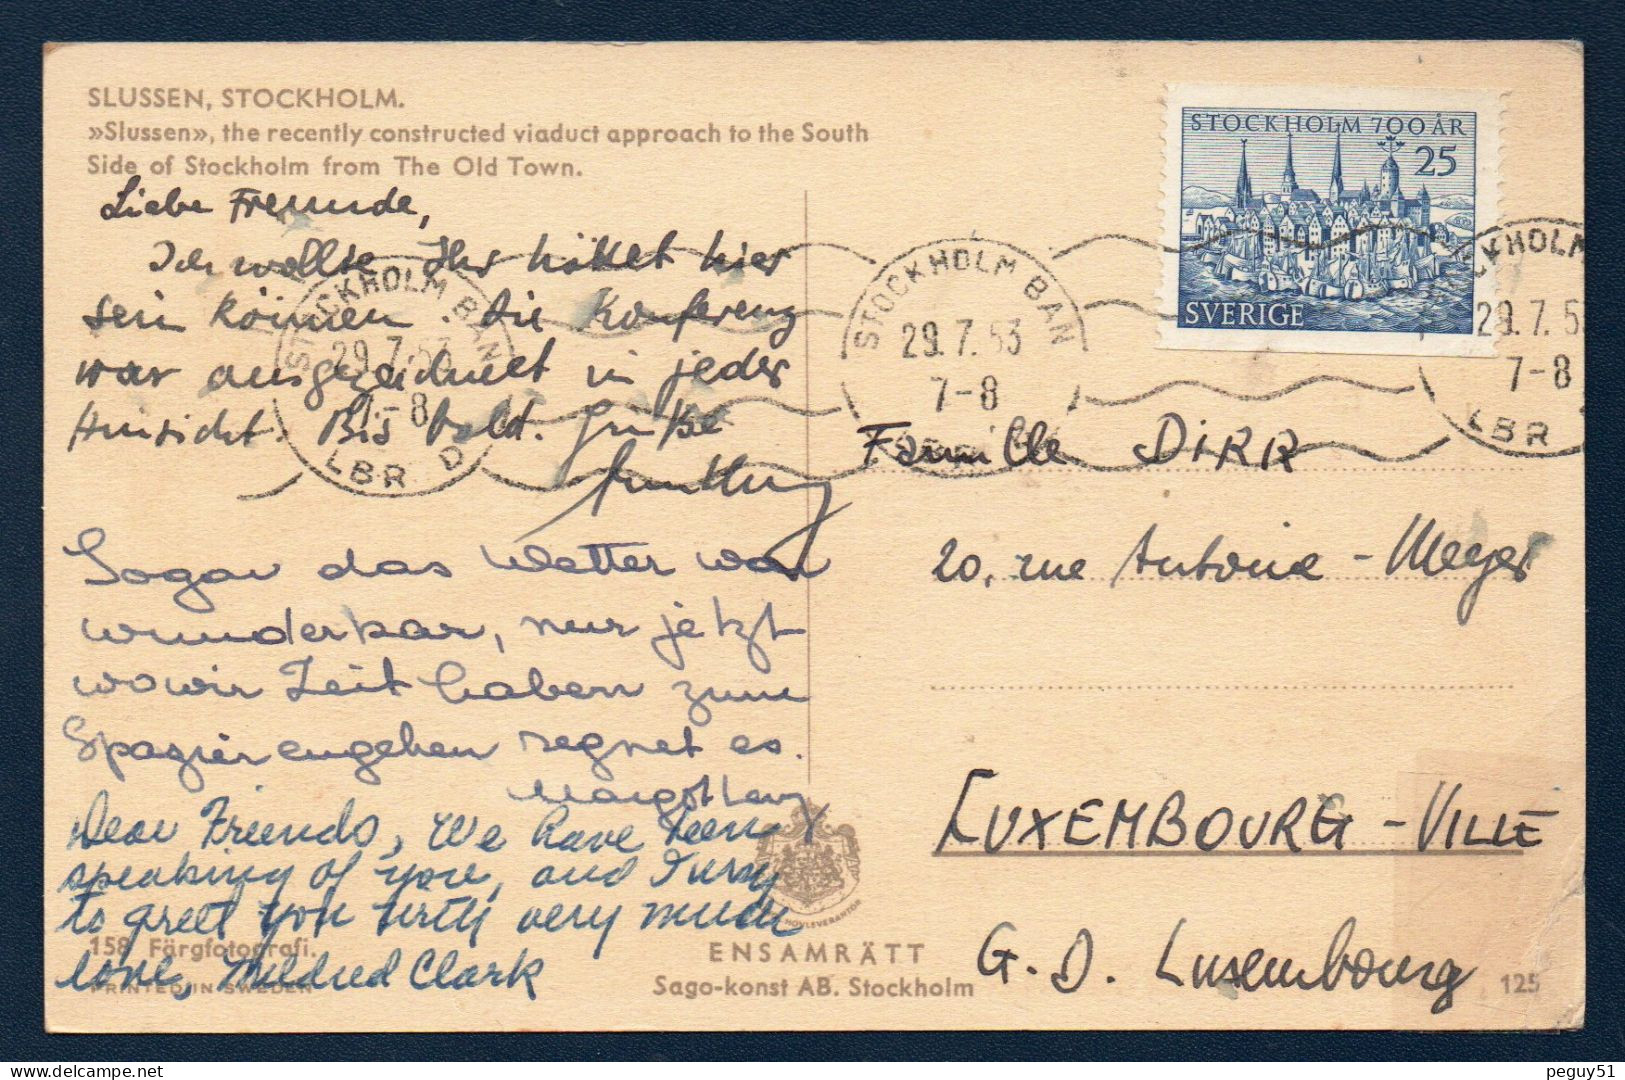 SLUSSEN, STOCKHOLM.
»Slussen», the recently constructed viaduct approach to the South
Side of Stockholm from The Old Town.
Liebe Freunde,
Ich wollte Ihr hättet hier
sein können. Die Konferenz
war ausgezeichnet in jeder
Hinsicht. Bis bald. Grüße
Sogar das Wetter war
wunderbar, nur jetzt
wo wir Zeit haben zum
Spazierengehen regnet es.
Margot Levy
Dear Friends, We have been
speaking of you, and I
to greet you with very much
love, Mildred Clark
158 Färgfotografi.
PRINTED IN SWEDEN
HOVLEVERANTÖR
ENSAMRÄTT
Sago-konst AB. Stockholm
125
STOCKHOLM 700 ÅR
25
SVERIGE
STOCKHOLM BAN
29.7.53
7-8
LBR D
STOCKHOLM BAN
29.7.53
7-8
STOCKHOLM
29.7.53
7-8
LBR
Famille DIRR
20, rue Antoine-Meyer
LUXEMBOURG-VILLE
G.D. Luxembourg
peguy51